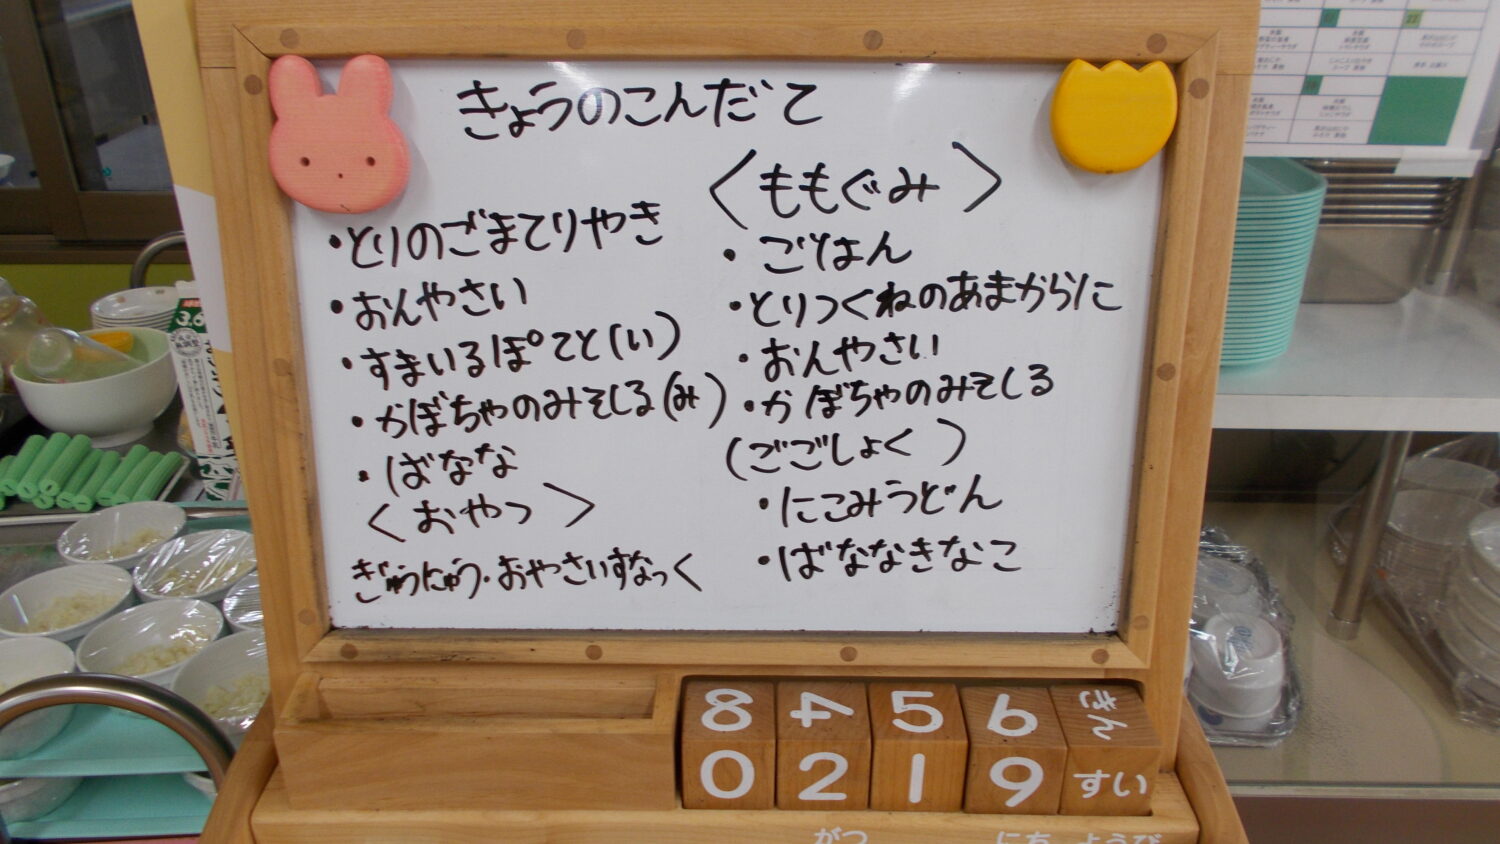 きょうのこんだて
・とりのごまてりやき
・おんやさい
・すまいるぽてと(い)
・かぼちゃのみそしる(み)
・ばなな
〈おやつ〉
ぎゅうにゅう・おやさいすなっく
〈ももぐみ〉
・ごはん
・とりつくねのあまからに
・おんやさい
・かぼちゃのみそしる
(ごごしょく)
・にこみうどん
・ばななきなこ
8 4 5 6 きん
0 2 1 9 すい
がつ にち ようび
3.6